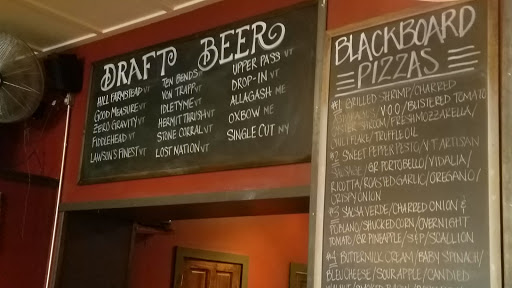 DRAFT BEER
HILL FARMSTEAD VT
GOOD MEASURE VT
ZERO GRAVITY VT
FIDDLEHEAD VT
LAWSON'S FINEST VT
TEN BENDS VT
VON TRAPP VT
IDLETYME VT
HERMIT THRUSH VT
STONE CORRAL VT
LOST NATION VT
UPPER PASS VT
DROP-IN VT
ALLAGASH ME
OXBOW ME
SINGLE CUT NY
BLACKBOARD
PIZZAS
#1 GRILLED SHRIMP/CHARRED
VOO/BLISTERED TOMATO
FRESH MOZZARELLA/
CHILI FLAKE/TRUFFLE OIL
#2 SWEET PEPPER PESTO/VT ARTISAN
SAUSAGE/OR PORTOBELLO/VIDALIA/
RICOTTA/ROASTED GARLIC/OREGANO/
CRISPY ONION
#3 SALSA VERDE/CHARRED ONION &
POBLANO/SHUCKED CORN/OVERNIGHT
TOMATO/GR PINEAPPLE/S&P/SCALLION
#4 BUTTERMILK CREAM/BABY SPINACH/
BLEU CHEESE/SOUR APPLE/CANDIED